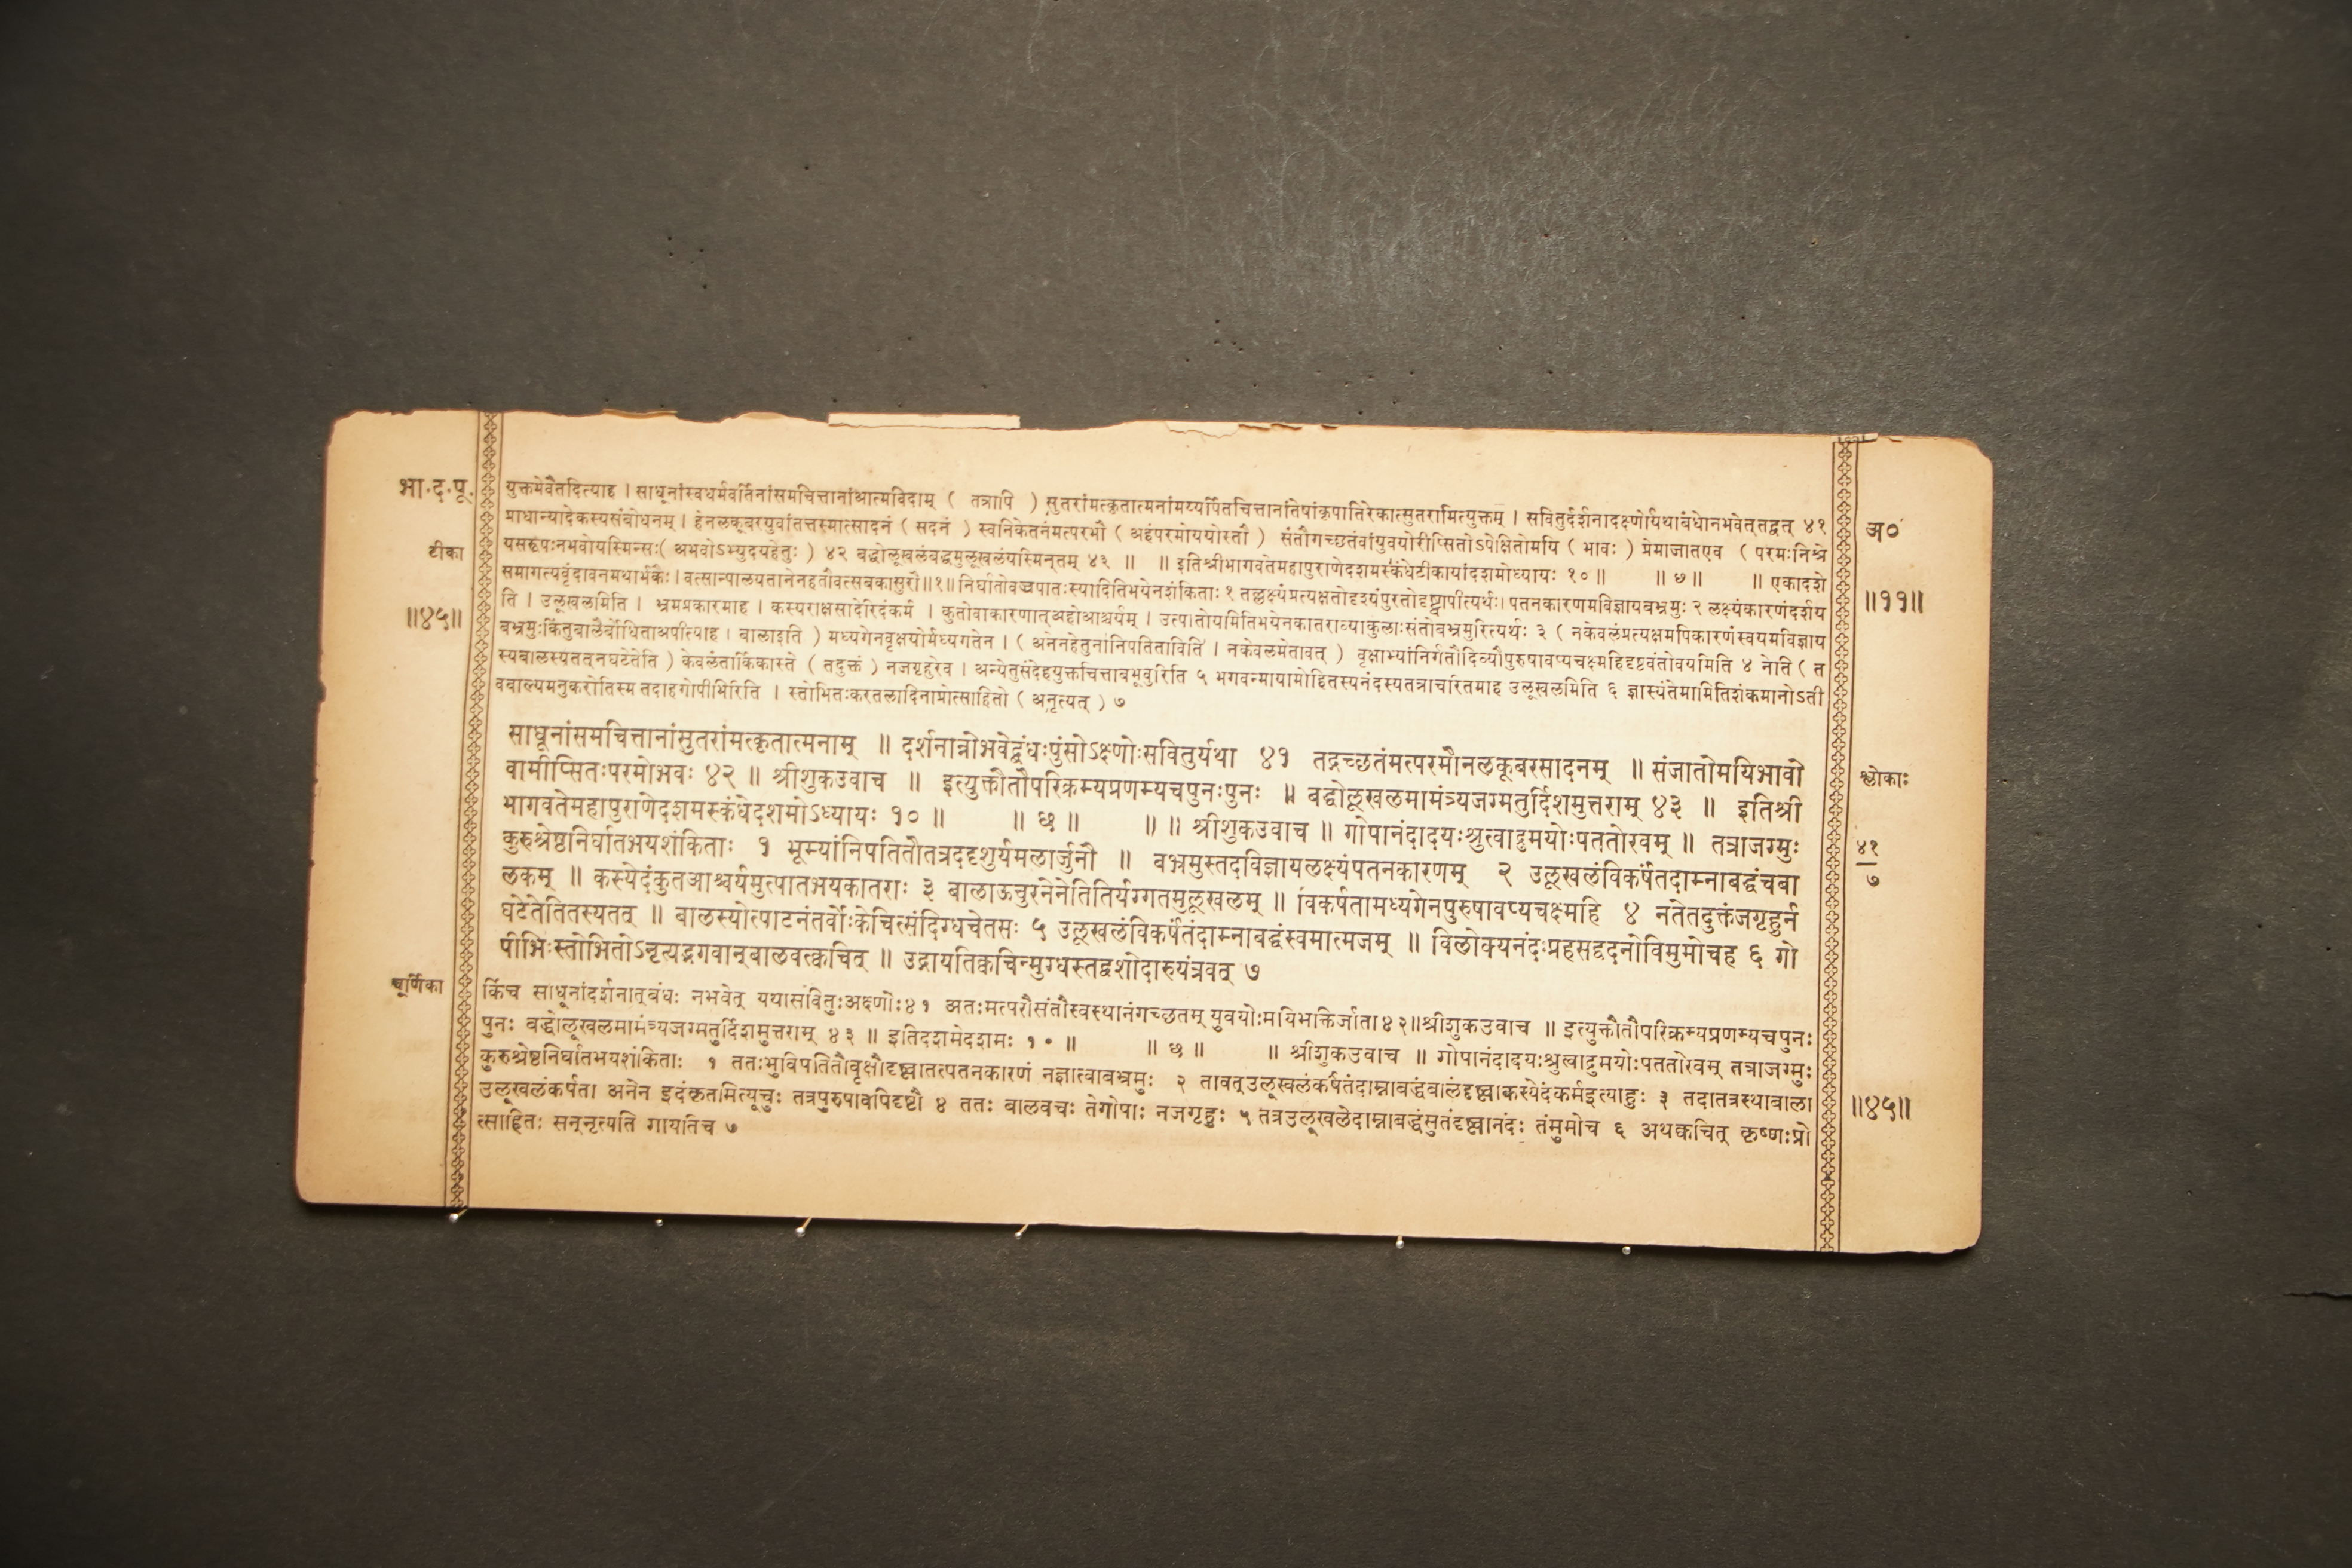 भा.द.पू.
टीका
॥४५॥
युक्तमेवैतदित्याह । साधूनांस्वधर्मवर्तिनांसमचित्तानांआत्मविदाम् ( तत्रापि ) सुतरांमत्कृतात्मनांमय्यर्पितचित्तानांतेषांकृपातिरेकात्सुतरामित्युक्तम् । सवितुर्दर्शनादक्ष्णोर्यथाबंधोनभवेत्तद्वत् ४१
प्राधान्यादेकस्यसंबोधनम् । हेनलकूबरयुवांतत्तस्मात्सादनं ( सदनं ) स्वनिकेतनंमत्परमौ ( अहंपरमोययोस्तौ ) संतौगच्छतंवांयुवयोरीप्सितोऽपेक्षितोमयि ( भावः ) प्रेमाजातएव ( परमःनिश्रे
यसरूपःनभवोयस्मिन्सः( अभवोऽभ्युदयहेतुः ) ४२ बद्धोलूखलंबद्धमुलूखलंयस्मिन्तम् ४३ ॥ ॥ इतिश्रीभागवतेमहापुराणेदशमस्कंधेटीकायांदशमोध्यायः १० ॥ ॥ ७ ॥ ॥ एकादशे
समागत्यवृंदावनमथार्भकैः । वत्सान्पालयतानेनहतौवत्सबकासुरौ॥१॥ निर्घातोवज्रपातःस्यादितिभयेनशंकिताः १ तल्लक्ष्यंप्रत्यक्षतोदृश्यंपुरतोदृष्ट्वापीत्यर्थः। पतनकारणमविज्ञायबभ्रमुः २ लक्ष्यंकारणंदर्शय
ति । उलूखलमिति । भ्रमप्रकारमाह । कस्यराक्षसादेरिदंकर्म । कुतोवाकारणात्अहोआश्चर्यम् । उत्पातोयमितिभयेनकातराव्याकुलाःसंतोबभ्रमुरित्यर्थः ३ ( नकेवलंप्रत्यक्षमपिकारणंस्वयमविज्ञाय
बभ्रमुःकिंतुबालैर्बोधिताअपीत्याह । बालाइति ) मध्यगेनवृक्षयोर्मध्यगतेन । ( अनेनहेतुनांनिपतिताविति । नकेवलमेतावत् ) वृक्षाभ्यांनिर्गतौदिव्यौपुरुषावप्यचक्ष्महिदृष्टवंतोवयमिति ४ नेति ( त
स्यबालस्यतत्नघटेतेति ) केवलंतार्किकास्ते ( तदुक्तं ) नजगृहुरेव । अन्येतुसंदेहयुक्तचित्ताबभूवुरिति ५ भगवन्मायामोहितस्यनंदस्यतत्राचरितमाह उलूखलमिति ६ ज्ञास्यंतेमामितिशंकमानोऽती
वबाल्यमनुकरोतिस्म तदाहगोपीभिरिति । स्तोभितःकरतलादिनाप्रोत्साहितो ( अनृत्यत् ) ७
साधूनांसमचित्तानांसुतरांमत्कृतात्मनाम् ॥ दर्शनान्नोभवेद्बंधःपुंसोऽक्ष्णोःसवितुर्यथा ४१ तद्गच्छतंमत्परमौनलकूबरसादनम् ॥ संजातोमयिभावो
वामीप्सितःपरमोभवः ४२ ॥ श्रीशुकउवाच ॥ इत्युक्तौतौपरिक्रम्यप्रणम्यचपुनःपुनः ॥ बद्धोलूखलमामंत्र्यजग्मतुर्दिशमुत्तराम् ४३ ॥ इतिश्री
भागवतेमहापुराणेदशमस्कंधेदशमोऽध्यायः १० ॥ ॥ छ ॥ ॥ ॥ श्रीशुकउवाच ॥ गोपानंदादयःश्रुत्वाद्रुमयोःपततोरवम् ॥ तत्राजग्मुः
कुरुश्रेष्ठनिर्घातभयशंकिताः १ भूम्यांनिपतितौतत्रददृशुर्यमलार्जुनौ ॥ बभ्रमुस्तदविज्ञायलक्ष्यंपतनकारणम् २ उलूखलंविकर्षंतंदाम्नाबद्धंचबा
लकम् ॥ कस्येदंकुतआश्चर्यमुत्पातभयकातराः ३ बालाऊचुरनेनेतितिर्यग्गतमुलूखलम् ॥ विकर्षतामध्यगेनपुरुषावप्यचक्ष्महि ४ नतेतदुक्तंजगृहुर्न
घटेतेतितस्यतत् ॥ बालस्योत्पाटनंतर्वोःकेचित्संदिग्धचेतसः ५ उलूखलंविकर्षंतंदाम्नाबद्धंस्वमात्मजम् ॥ विलोक्यनंदःप्रहसद्वदनोविमुमोचह ६ गो
पीभिःस्तोभितोऽनृत्यद्भगवान्बालवत्क्वचित् ॥ उद्गायतिक्वचिन्मुग्धस्तद्वशोदारुयंत्रवत् ७
चूर्णिका
किंच साधूनांदर्शनात्बंधः नभवेत् यथासवितुःअक्ष्णोः४१ अतःमत्परौसंतौस्वस्थानंगच्छतम् युवयोःमयिभक्तिर्जाता४२॥श्रीशुकउवाच ॥ इत्युक्तौतौपरिक्रम्यप्रणम्यचपुनः
पुनः बद्धोलूखलमामंत्र्यजग्मतुर्दिशमुत्तराम् ४३ ॥ इतिदशमेदशमः १० ॥ ॥ छ ॥ ॥ श्रीशुकउवाच ॥ गोपानंदादयःश्रुत्वाद्रुमयोःपततोरवम् तत्राजग्मुः
कुरुश्रेष्ठनिर्घातभयशंकिताः १ ततःभुविपतितौवृक्षौदृष्ट्वातत्पतनकारणं नज्ञात्वाबभ्रमुः २ तावत्उलूखलंकर्षंतंदाम्नाबद्धंबालंदृष्ट्वाकस्येदंकर्मइत्याहुः ३ तदातत्रस्थाबाला
उलूखलंकर्षता अनेन इदंकृतमित्यूचुः तत्रपुरुषावपिदृष्टौ ४ ततः बालवचः तेगोपाः नजगृहुः ५ तत्रउलूखलेदाम्नाबद्धंसुतंदृष्ट्वानंदः तंमुमोच ६ अथक्वचित् कृष्णःप्रो
त्साहितः सन्नृत्यति गायतिच ७
अ०
॥११॥
श्लोकाः
४१
७
॥४५॥